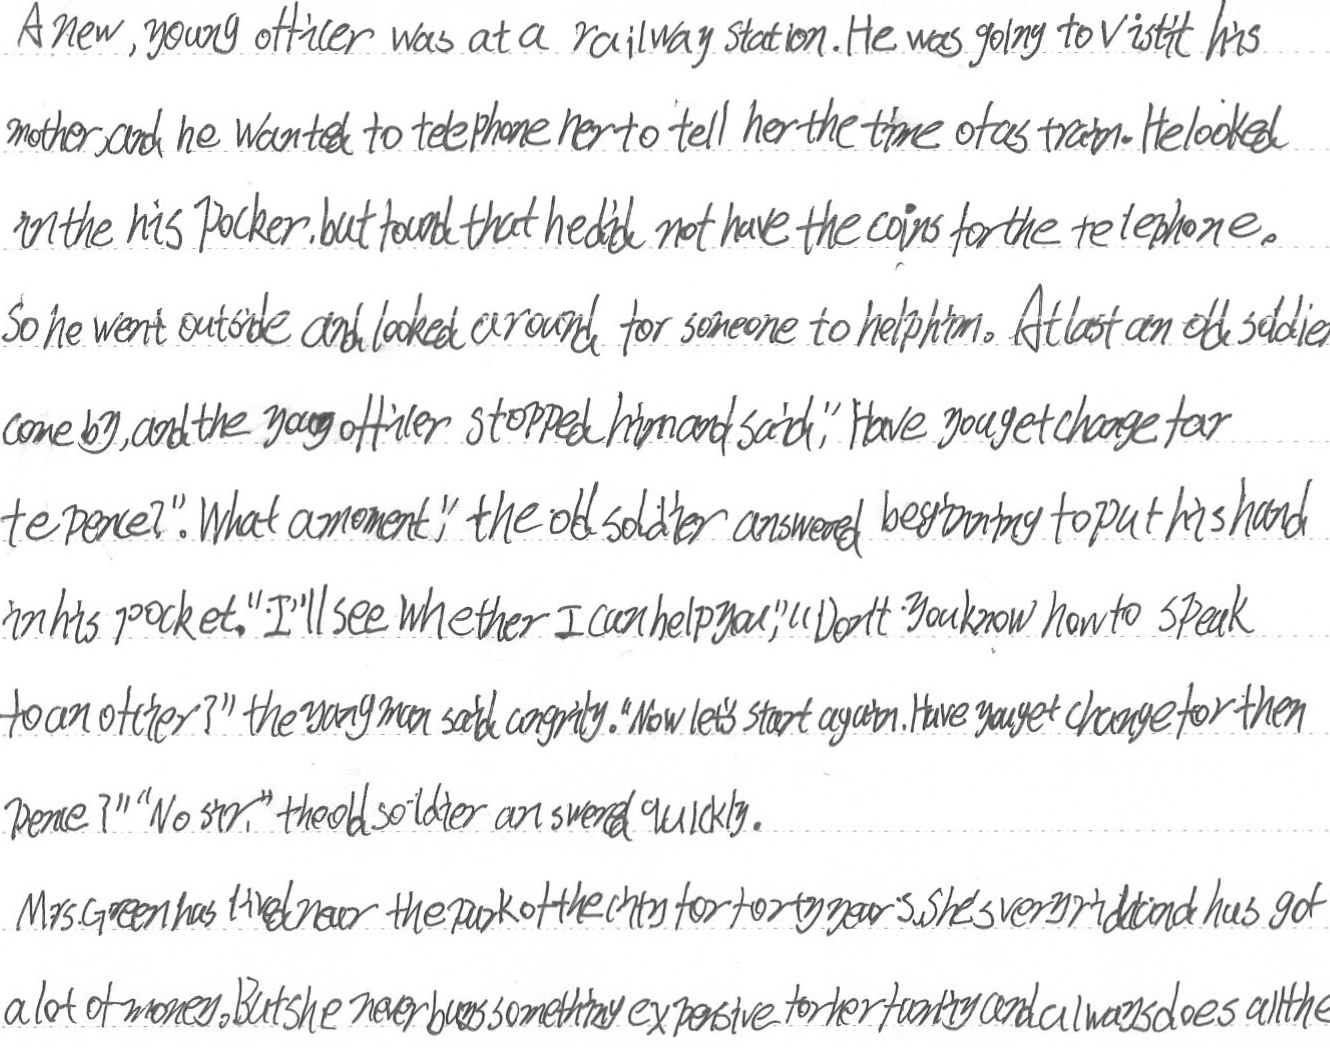 A new, young officer was at a railway station. He was going to Vistit his
mother, and he wanted to telephone her to tell her the time of as train. He looked
in the his Pocker. but found that he did not have the coins for the telephone.
So he went outside and looked around for someone to help him. At last an old soldier
come by, and the young officer stopped him and said," Have you get change for
te pence?". What a moment," the old soldier answered beginning to put his hand
in his pocket. "I"ll see whether I can help you," "Don't you know how to speak
to an officer?" the young man said angrity. "Now let's start again. Have you get change for then
pence?" "No sir." the old soldier answered quickly.
Mrs. Green has lived near the park of the city for forty years. She's very and has got
a lot of money. But she never buys something expensive for her family and always does all the